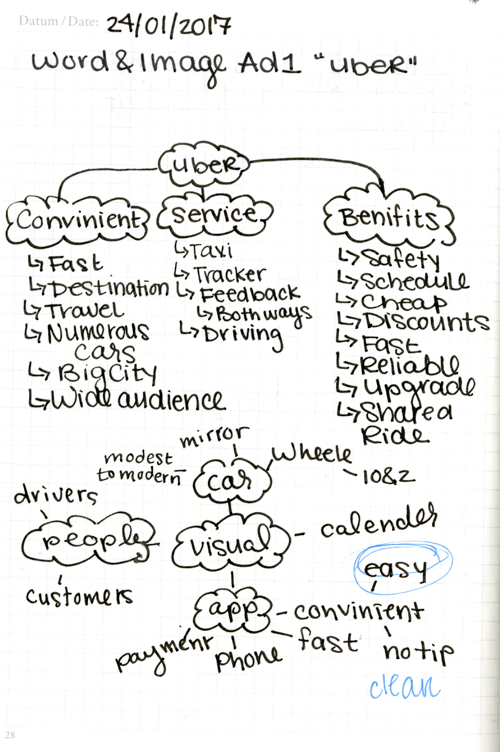 Datum / Date: 24/01/2017
Word & Image Ad1 "UBER"
uber
Convinient
Service
Benifits
↳ Fast
↳ Destination
↳ Travel
↳ Numerous
cars
↳ Big City
↳ Wide audience
↳ Taxi
↳ Tracker
↳ Feedback
↳ Both ways
↳ Driving
↳ Safety
↳ Schedule
↳ Cheap
↳ Discounts
↳ Fast
↳ Reliable
↳ Upgrade
↳ Shared
Ride
mirror
modest
to modern
car
Wheele
10&2
drivers
people
customers
visual
calender
easy
app
convinient
payment
phone
fast
no tip
clean
28